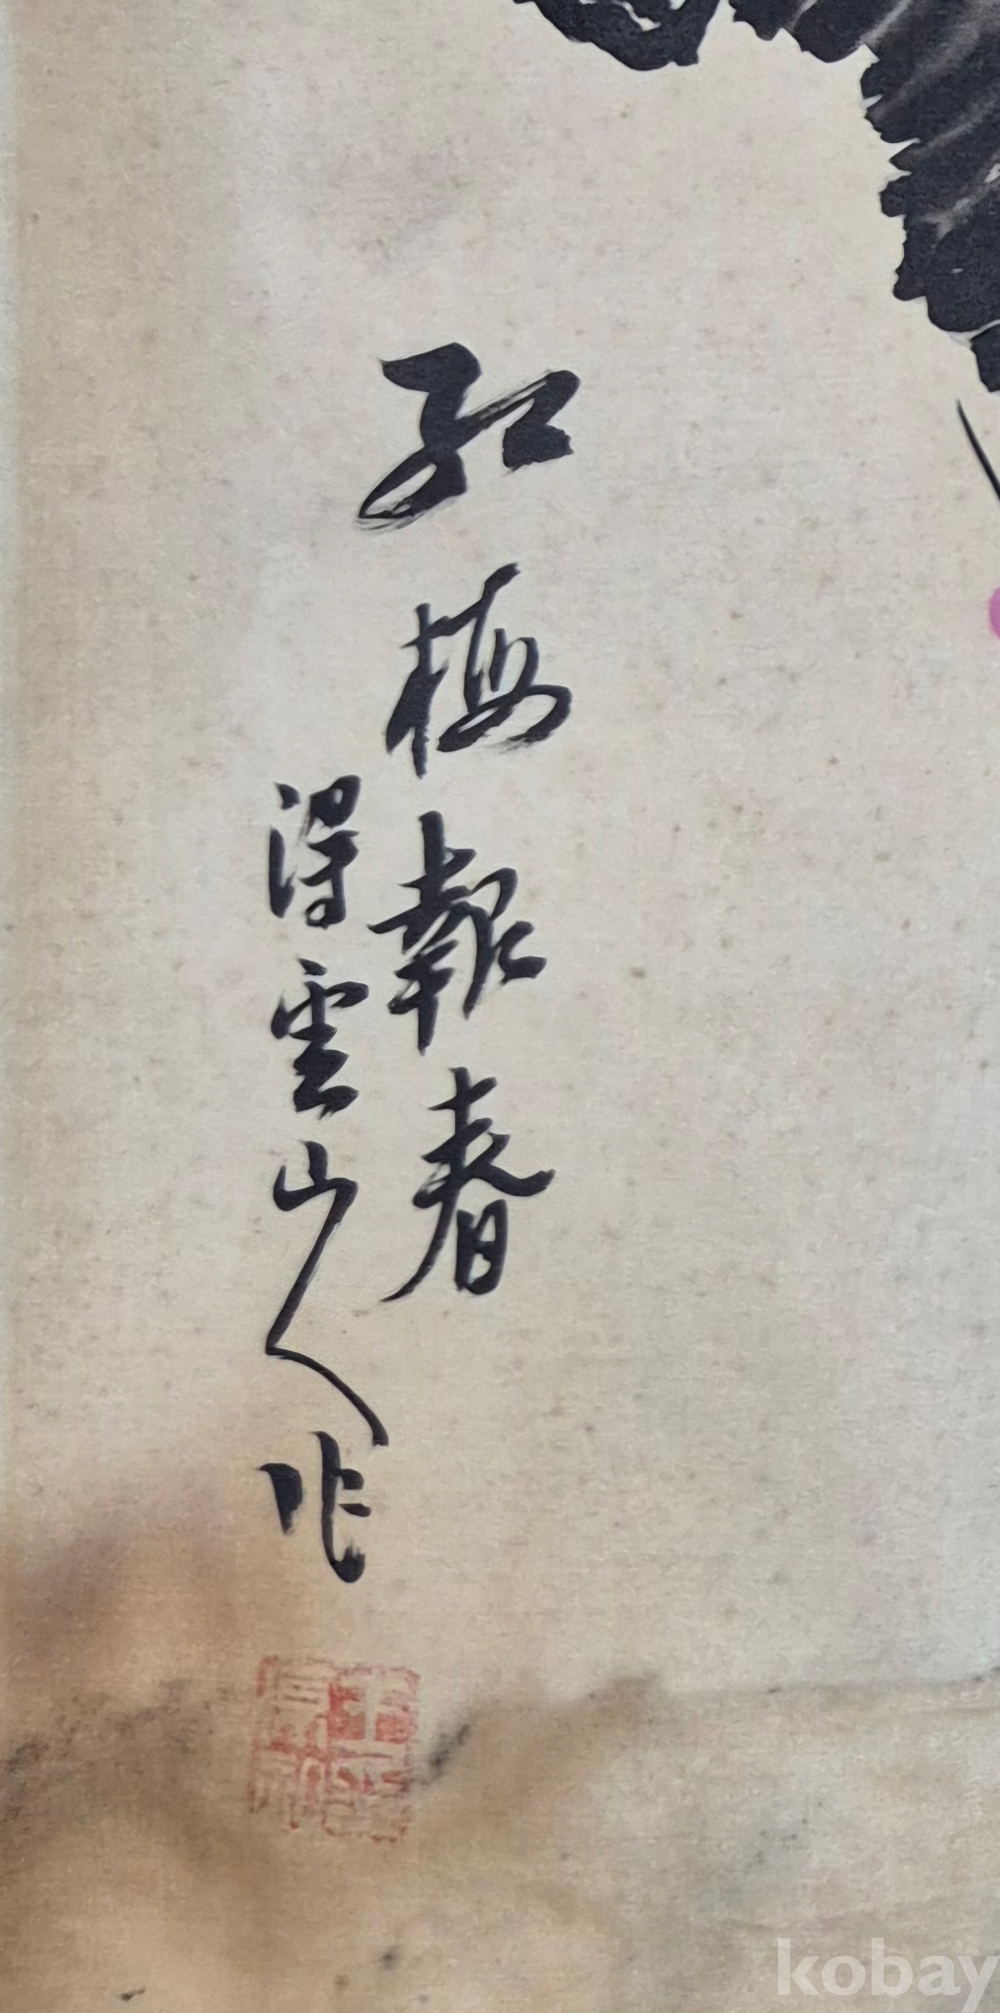 紅梅報春
得雲山人作
kobay